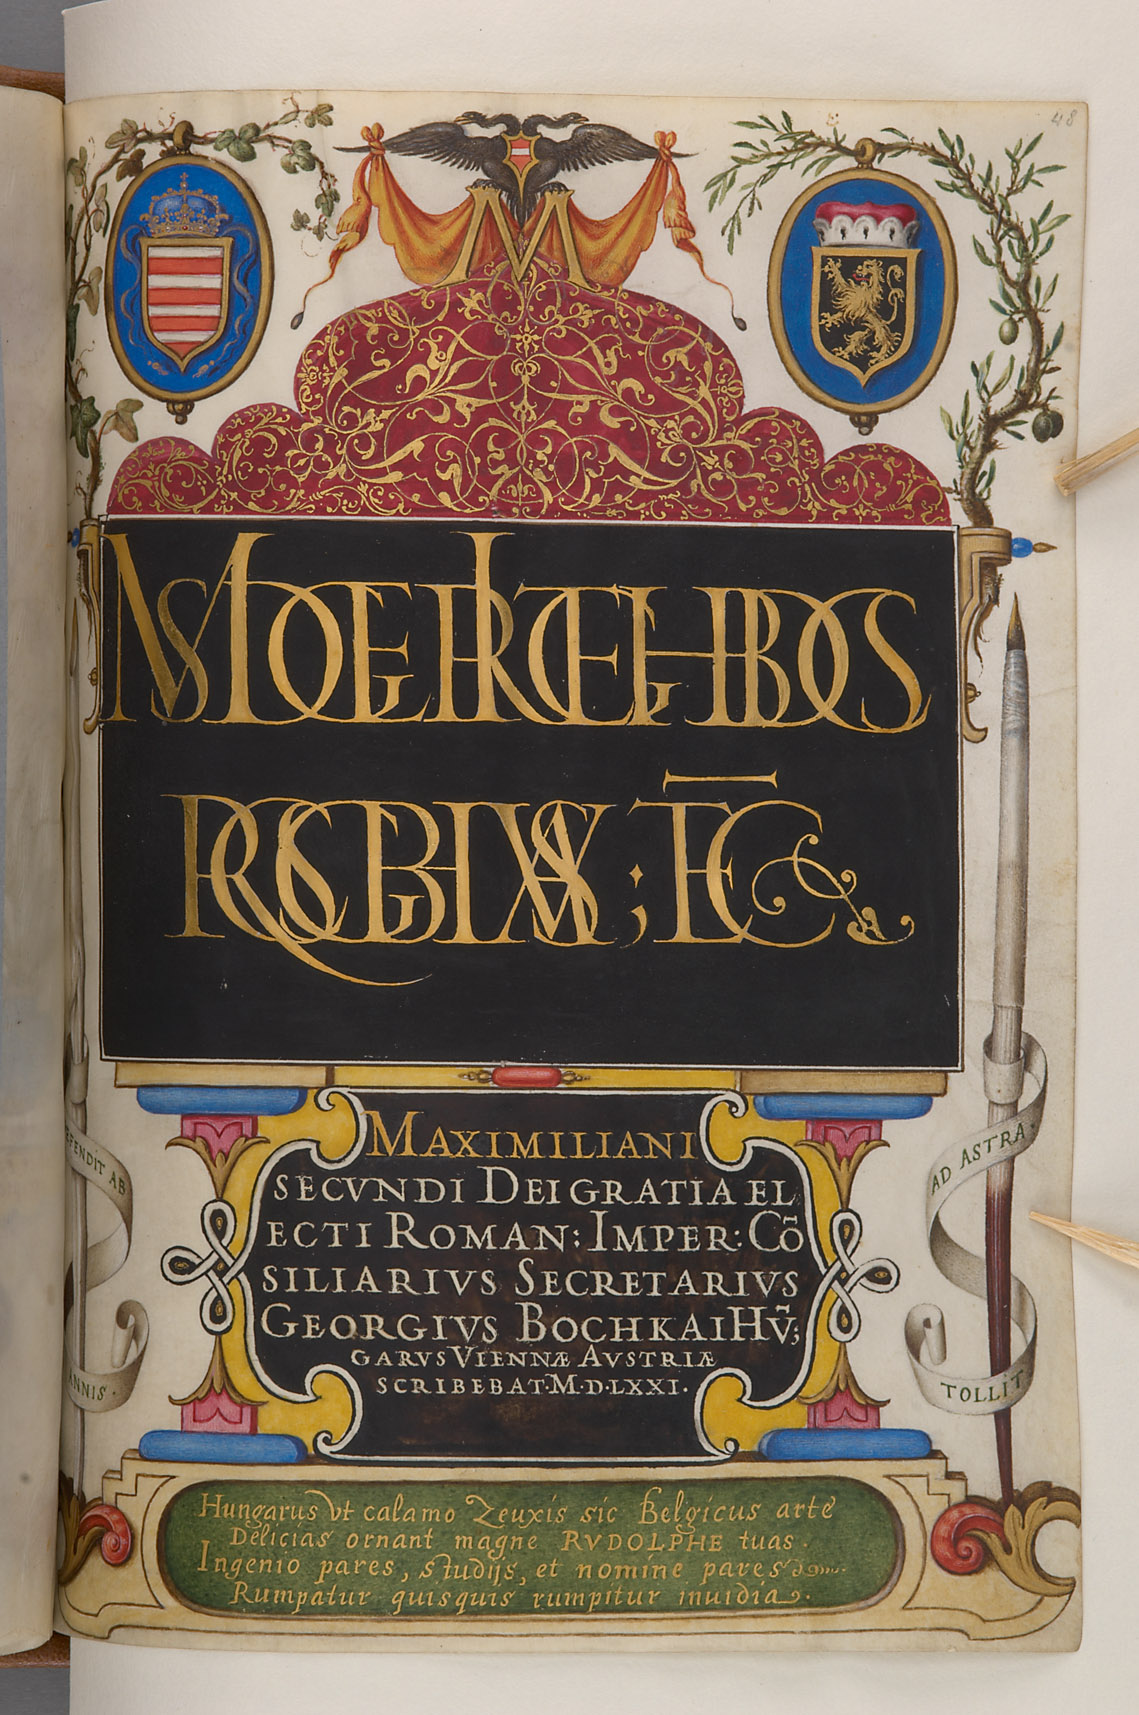 48
M
MAXIMILIANI
SECVNDI DEI GRATIA EL
ECTI ROMAN: IMPER: CÕ
SILIARIVS SECRETARIVS
GEORGIVS BOCHKAI HṼ;
GARVS VIENNÆ AVSTRIÆ
SCRIBEBAT·M·D·LXXI·
EFENDIT AB
ANNIS·
AD ASTRA·
TOLLIT
Hungarus Vt calamo Zeuxis sic Belgicus arte
Delicias ornant magne RVDOLPHE tuas.
Ingenio pares, studijs, et nomine pares
Rumpatur quisquis rumpitur inuidia.